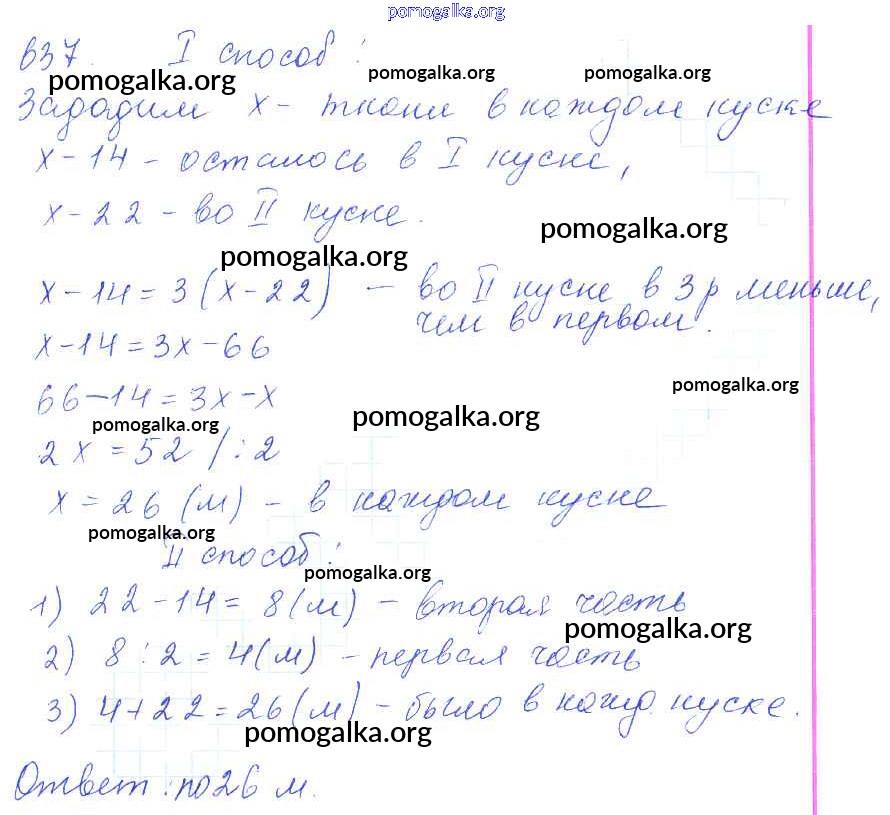 pomogalka.org
637. I способ:
pomogalka.org pomogalka.org pomogalka.org
Зададим х - ткани в каждом куске
х - 14 - осталось в I куске,
х - 22 - во II куске.
pomogalka.org
pomogalka.org
х - 14 = 3(х - 22) - во II куске в 3 р меньше,
чем в первом.
х - 14 = 3х - 66
66 - 14 = 3х - х
pomogalka.org
pomogalka.org pomogalka.org
2х = 52 / : 2
х = 26 (м) - в каждом куске
pomogalka.org
II способ:
pomogalka.org
1) 22 - 14 = 8 (м) - вторая часть
pomogalka.org
2) 8 : 2 = 4 (м) - первая часть
3) 4 + 22 = 26 (м) - было в кажд. куске.
pomogalka.org
Ответ: по 26 м.